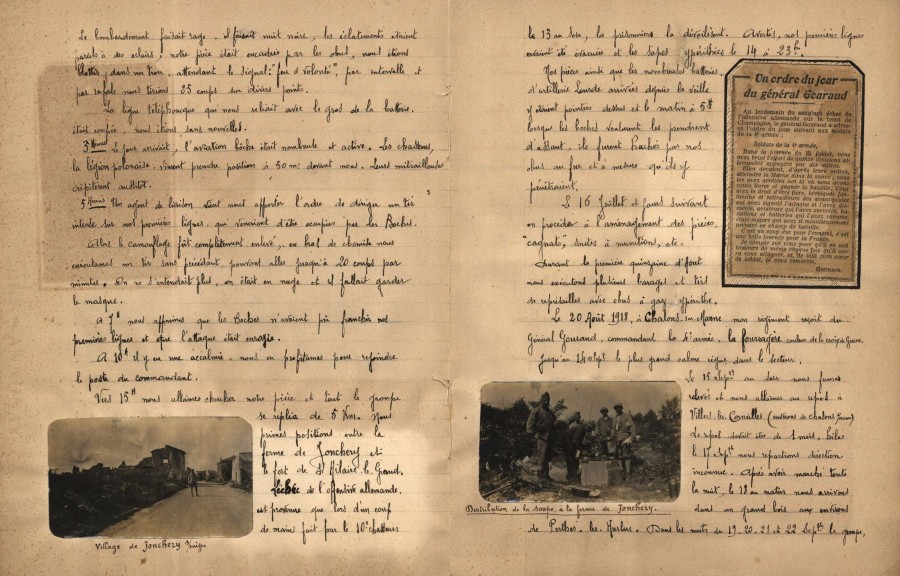 Le bombardement faisait rage. Il faisait nuit noire, les éclatements étaient
pareils à des éclairs, notre pièce était encadrée par les obus, nous étions
blottis, dans un trou, attendant le signal: "feu à volonté", par intervalle et
par rafale nous tirions 25 coups sur divers points.
La ligne téléphonique qui nous reliait avec le gros de la batterie
était coupée, nous étions sans nouvelles.
3 heures Le jour arrivait, l'aviation boche était nombreuse et active. Les chasseurs,
la légion polonaise, vinrent prendre position à 50 m. devant nous. Leurs mitrailleuses
crépitèrent aussitôt.
5 heures Un agent de liaison vint nous apporter l'ordre de diriger un tir
intense sur nos premières lignes qui venaient d'être occupées par les Boches.
Alors le camouflage fut complètement enlevé, en bras de chemise nous
exécutâmes un tir sans précédent, pouvant aller jusqu'à 20 coups par
minutes. On ne s'entendait plus, on était en nage et il fallait garder
le masque.
A 7h nous apprîmes que les Boches n'avaient pu franchir nos
premières lignes et que l'attaque était enrayée.
A 10h il y eu une accalmie, nous en profitâmes pour rejoindre
le poste du commandant.
Vers 15H nous allâmes chercher notre pièce et tout le groupe
se replia de 5 Kms. Nous
primes positions entre la
ferme de Jonchery et
le fort de St Hilaire-le-Grand.
L'échec de l'offensive allemande,
est provenue que lors d'un coup
de mains fait par le 10e chasseurs
Village de Jonchery
le 13 au soir, les prisonniers la dévoilèrent. Avertis, nos premières lignes
avaient été évacuées et les sapes ypéritées le 14 à 23h.
Nos pièces ainsi que les nombreuses batteries
d'artillerie Lourde arrivées depuis la veille
y étaient pointées dessus et le matin à 5h
lorsque les boches voulurent les prendrent
d'assaut, ils furent hachés par nos
obus au fur et à mesure qu'ils y
pénétraient.
Le 16 Juillet et jours suivant
on procéda à l'aménagement des pièces,
cagnats, soutes à munitions, etc.
Durant la première quinzaine d'Août
nous exécutons plusieurs barages et tirs
de représailles avec obus à gaz ypérithe.
Le 20 Août 1918, à Chalons-sur-Marne mon régiment reçoit du
Général Gouraud, commandant la 4e armée, la fourragère couleur de la croix de Guerre.
Jusqu'au 14 Sept le plus grand calme règne dans le secteur.
Le 15 Sept au soir nous fumes
relevés et nous allâmes au repos à
Villers-les-Cornailles (environs de Chalons
Le repos devait être de 1 mois, hélas
le 17 Sept nous repartions direction
inconnue. Après avoir marché toute
la nuit, le 18 au matin nous arrivons
dans un grand bois aux environs
de Perthes-les-Hurlus. Dans les nuits du 19-20-21 et 22 Septbre le groupe,
Distribution de la soupe, à la ferme de Jonchery.
Un ordre du jour
du général Gouraud
Au lendemain du sanglant échec de
l'offensive allemande sur le front de
Champagne, le général Gouraud a adressé
l'ordre du jour suivant aux soldats
de la 4e armée :
Soldats de la 4e armée,
Dans la journée du 15 juillet, vous
avez brisé l'effort de quinze divisions
allemandes appuyées par dix autres.
Elles devaient, d'après leurs ordres,
atteindre la Marne dans la soirée ; vous
les avez arrêtées net là où nous avons
voulu livrer et gagner la bataille. Vous
avez le droit d'être fiers, héroïques
fantassins et mitrailleurs des avant-postes
C'est un coup dur pour l'ennemi, c'est
une belle journée pour la France.
Je compte sur vous pour qu'il en soit
toujours de même chaque fois qu'il
osera vous attaquer, et, de tout mon cœur
de soldat, je vous remercie.
GOURAUD.